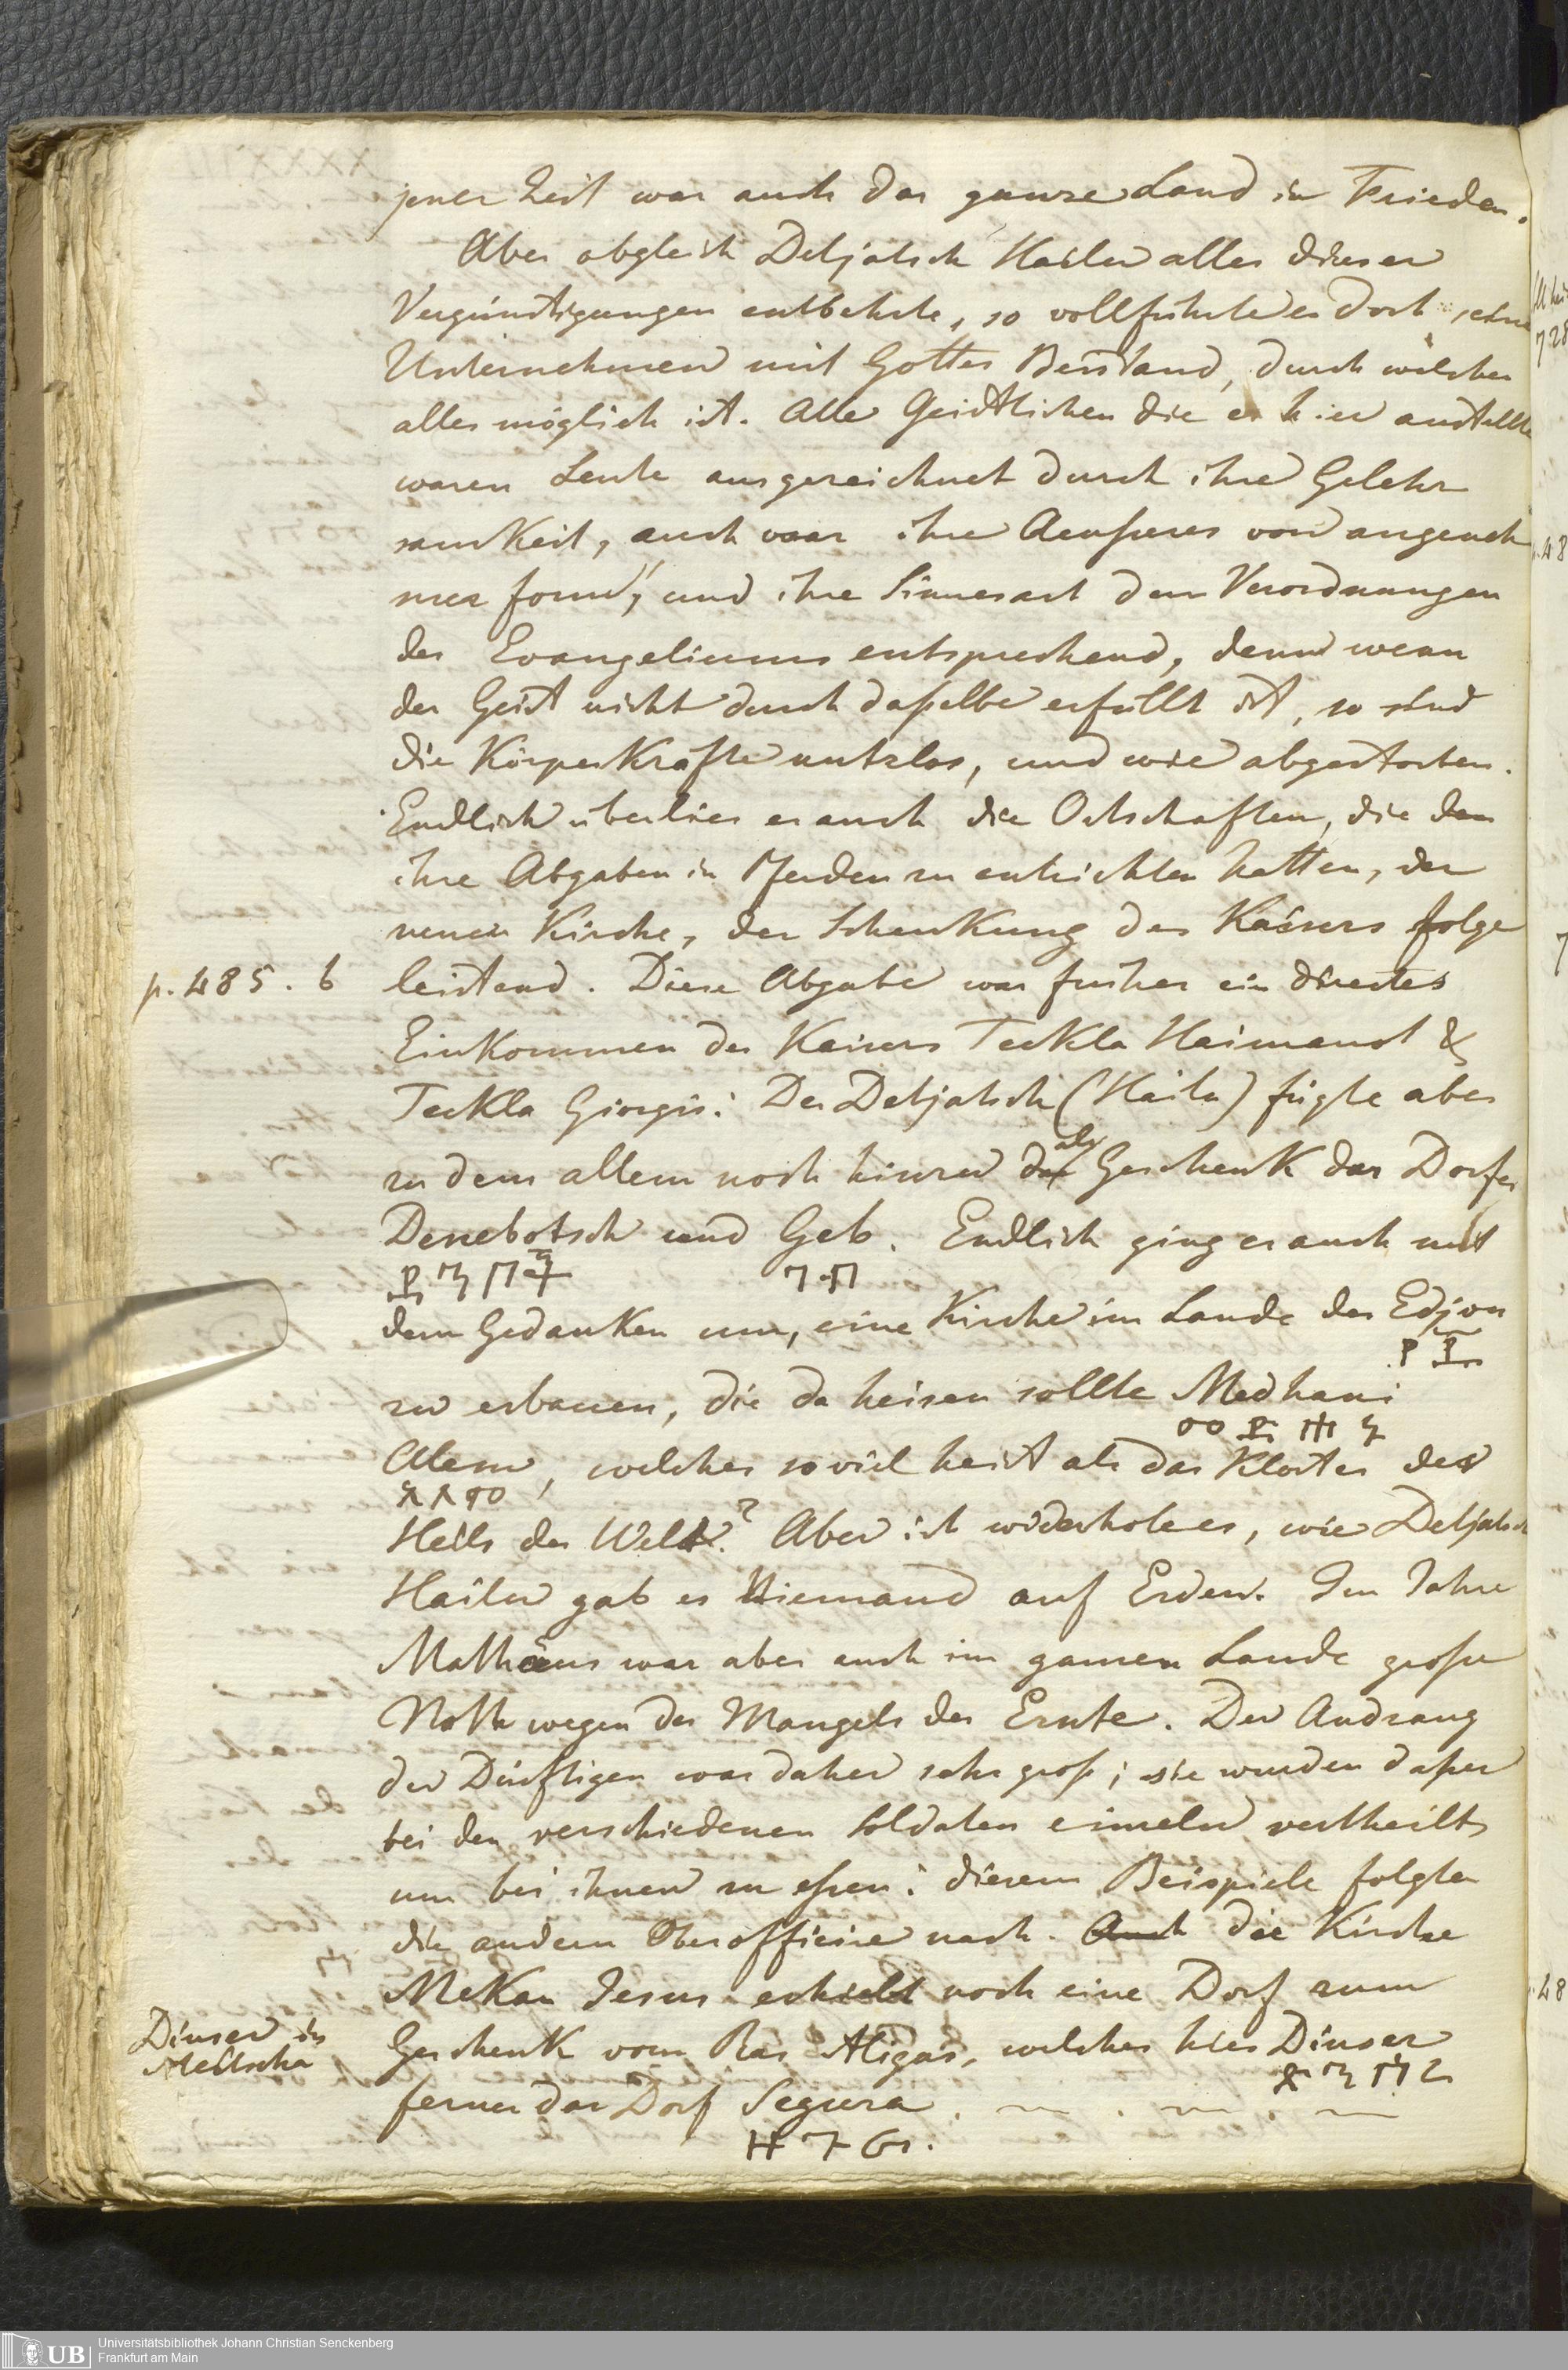 jener Zeit war auch das ganze Land in Frieden.
Aber obgleich Detjatsch Hailu alles dieser
Vergünstigungen entbehrte, so vollführte er doch seine
Unternehmen mit Gottes Beistand, durch welchen
alles möglich ist. Alle Geistlichen die er hier anstellte
waren Leute ausgezeichnet durch ihre Gelehr
samkeit, auch war ihre Aeußeres von angeneh
mer form, und ihre Sinnesart den Verordnungen
des Evangeliums entsprechend, denn wenn
der Geist nicht durch daßelbe erfüllt ist, so sind
die Körperkräfte nutzlos, und wie abgestorben.
Endlich überlies er auch die Ortschaften, die den
ihre Abgaben in Pferden zu entrichten hatten, der
neuen Kirche, der Schenkung des Kaisers folge
p. 485. b leistend. Diese Abgabe war früher ein directes
Einkommen der Kaisers Teckla Haimanot &
Teckla Giorgis: Der Detjatsch (Hailu) fügte aber
zu dem allem noch hinzu das als Geschenk das Dorfes
Denebotsch und Geb. Endlich ging er auch mit
ደንበቾ ጎብ
dem Gedanken um, eine Kirche im Lande der Edjou
zu erbauen, die da heisen sollte Medhani
መድኃኔ
Alem, welches soviel heist als das Kloster des
ዓለም
Heils der Welt? Aber ich wiederhole es, wie Detjatsch
Hailu gab es Niemand auf Erden. Im Jahre
Mathäus war aber auch im ganzen Lande große
Noth wegen des Mangels der Ernte. Der Andrang
der Dürftigen war daher sehr groß; sie wurden daher
bei den verschiedenen Soldaten einzeln vertheilt,
um bei ihnen zu eßen: diesem Beispiele folgten
die andern Oberofficire nach. Auch die Kirche
Mekan Jesus erhielt noch eine Dorf zum
Dinser in
Meitscha
Geschenk vom Ras Aligas, welches hies Dinser
ferner das Dorf Segura
ዘጉራ.
Universitätsbibliothek Johann Christian Senckenberg
UB Frankfurt am Main